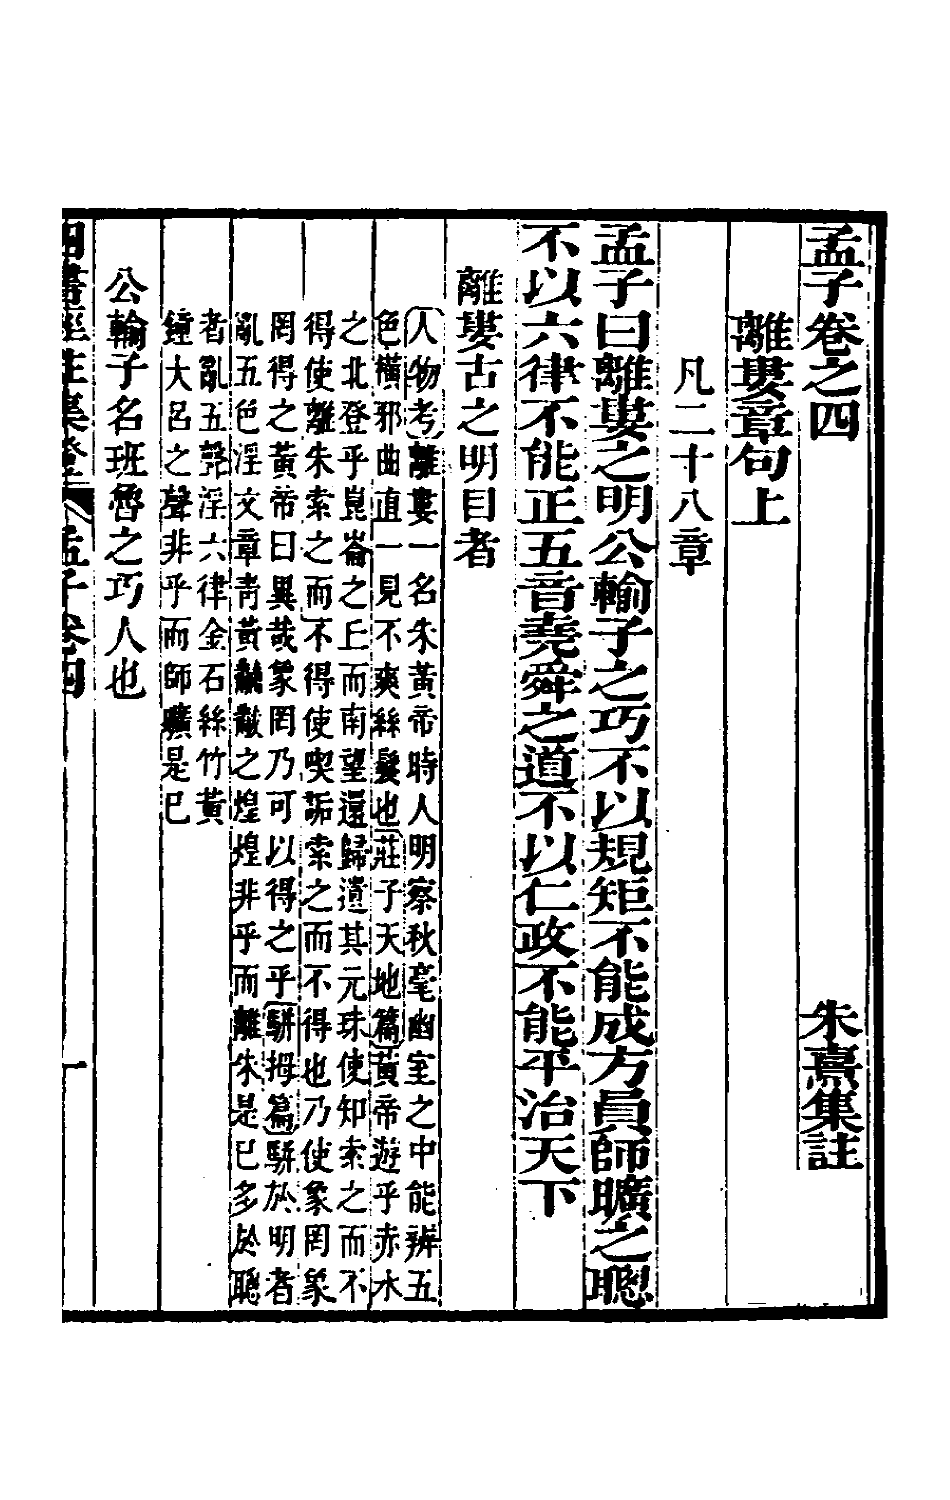 孟子卷之四 朱熹集註
離婁章句上
凡二十八章
孟子曰離婁之明公輸子之巧不以規矩不能成方員師曠之聰
不以六律不能正五音堯舜之道不以仁政不能平治天下
離婁古之明目者
人物考離婁一名朱黃帝時人明察秋毫幽室之中能辨五
色橫邪曲直一見不爽絲髮也莊子天地篇黃帝遊乎赤水
之北登乎崑崙之丘而南望還歸遺其元珠使知索之而不
得使離朱索之而不得使喫詬索之而不得也乃使象罔象
罔得之黃帝曰異哉象罔乃可以得之乎駢拇篇駢於明者
亂五色淫文章靑黃黼黻之煌煌非乎而離朱是已多於聰
者亂五聲淫六律金石絲竹黃
鐘大呂之聲非乎而師曠是已
公輸子名班魯之巧人也
四書經注集證 孟子卷四 一